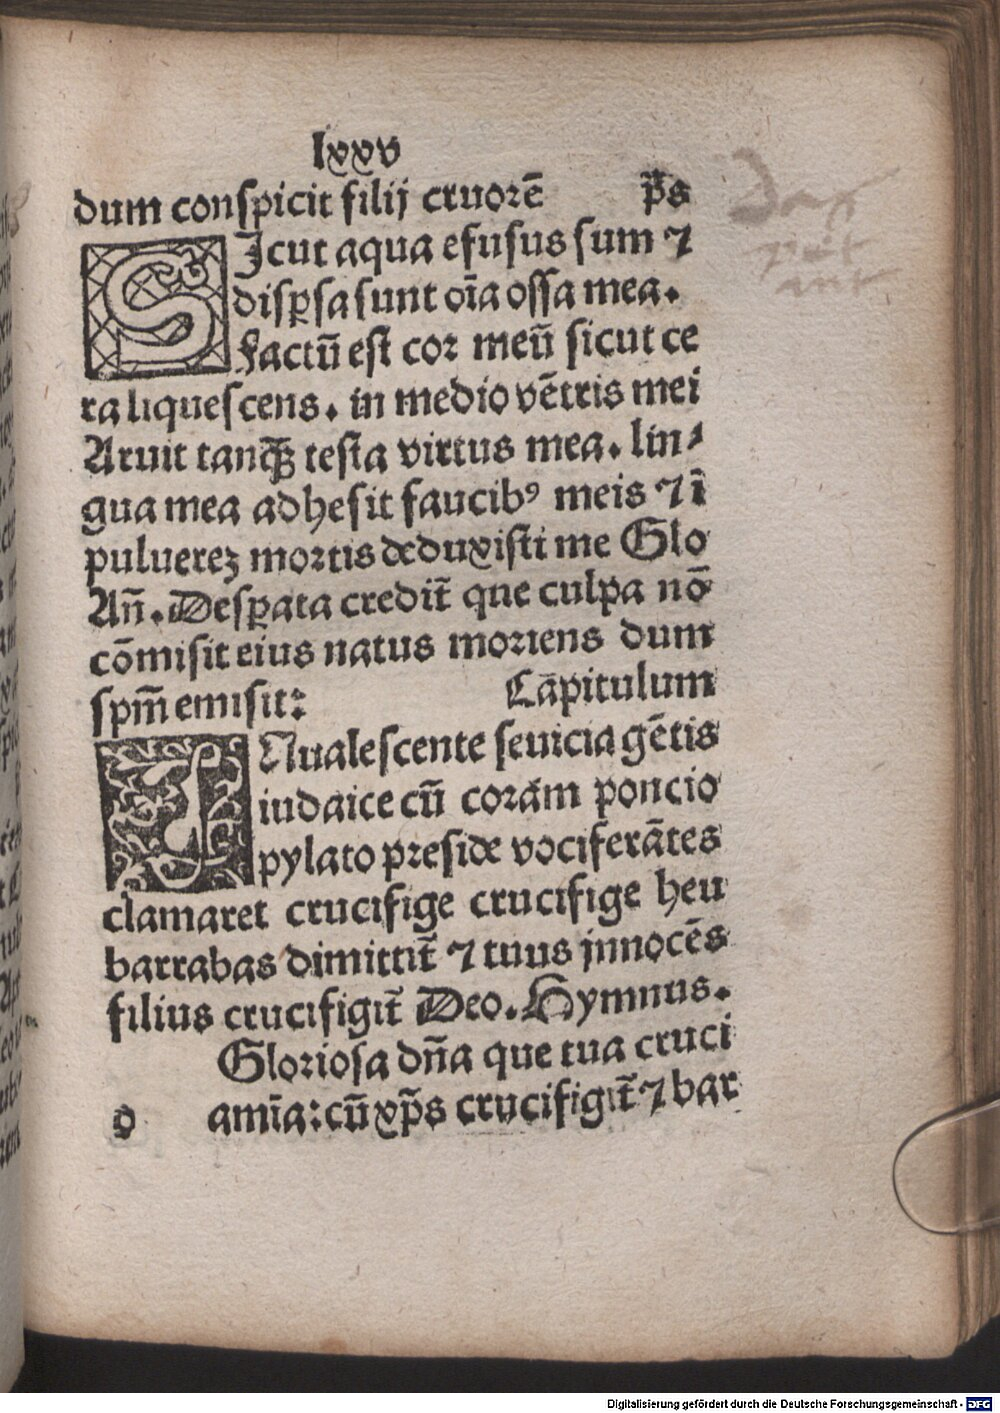 lxxv
dum conspicit filij cruorē p̄s
SIcut aqua efusus sum ⁊
disꝑsa sunt oīa ossa mea.
Factū est cor meū sicut ce
ra liquescens. in medio vētris mei
Aruit tanꝗ̃ testa virtus mea. lin⸗
gua mea adhesit faucibꝰ meis ⁊ ī
puluereꝫ mortis deduxisti me Glo
An̄. Desꝑata credit̄ que culpa nō
cōmisit eius natus moriens dum
spm̄ emisit: Cāpitulum
INualescente seuicia gētis
iudaice cū coram poncio
pylato preside vociferātes
clamaret crucifige crucifige heu
barrabas dimittit̄ ⁊ tuus jnnocēs
filius crucifigit̄ Deo. Hymnus.
Gloriosa dn̄a que tua cruci
o amīa: cū xp̄s crucifigit̄ ⁊ bar
Digitalisierung gefördert durch die Deutsche Forschungsgemeinschaft - DFG